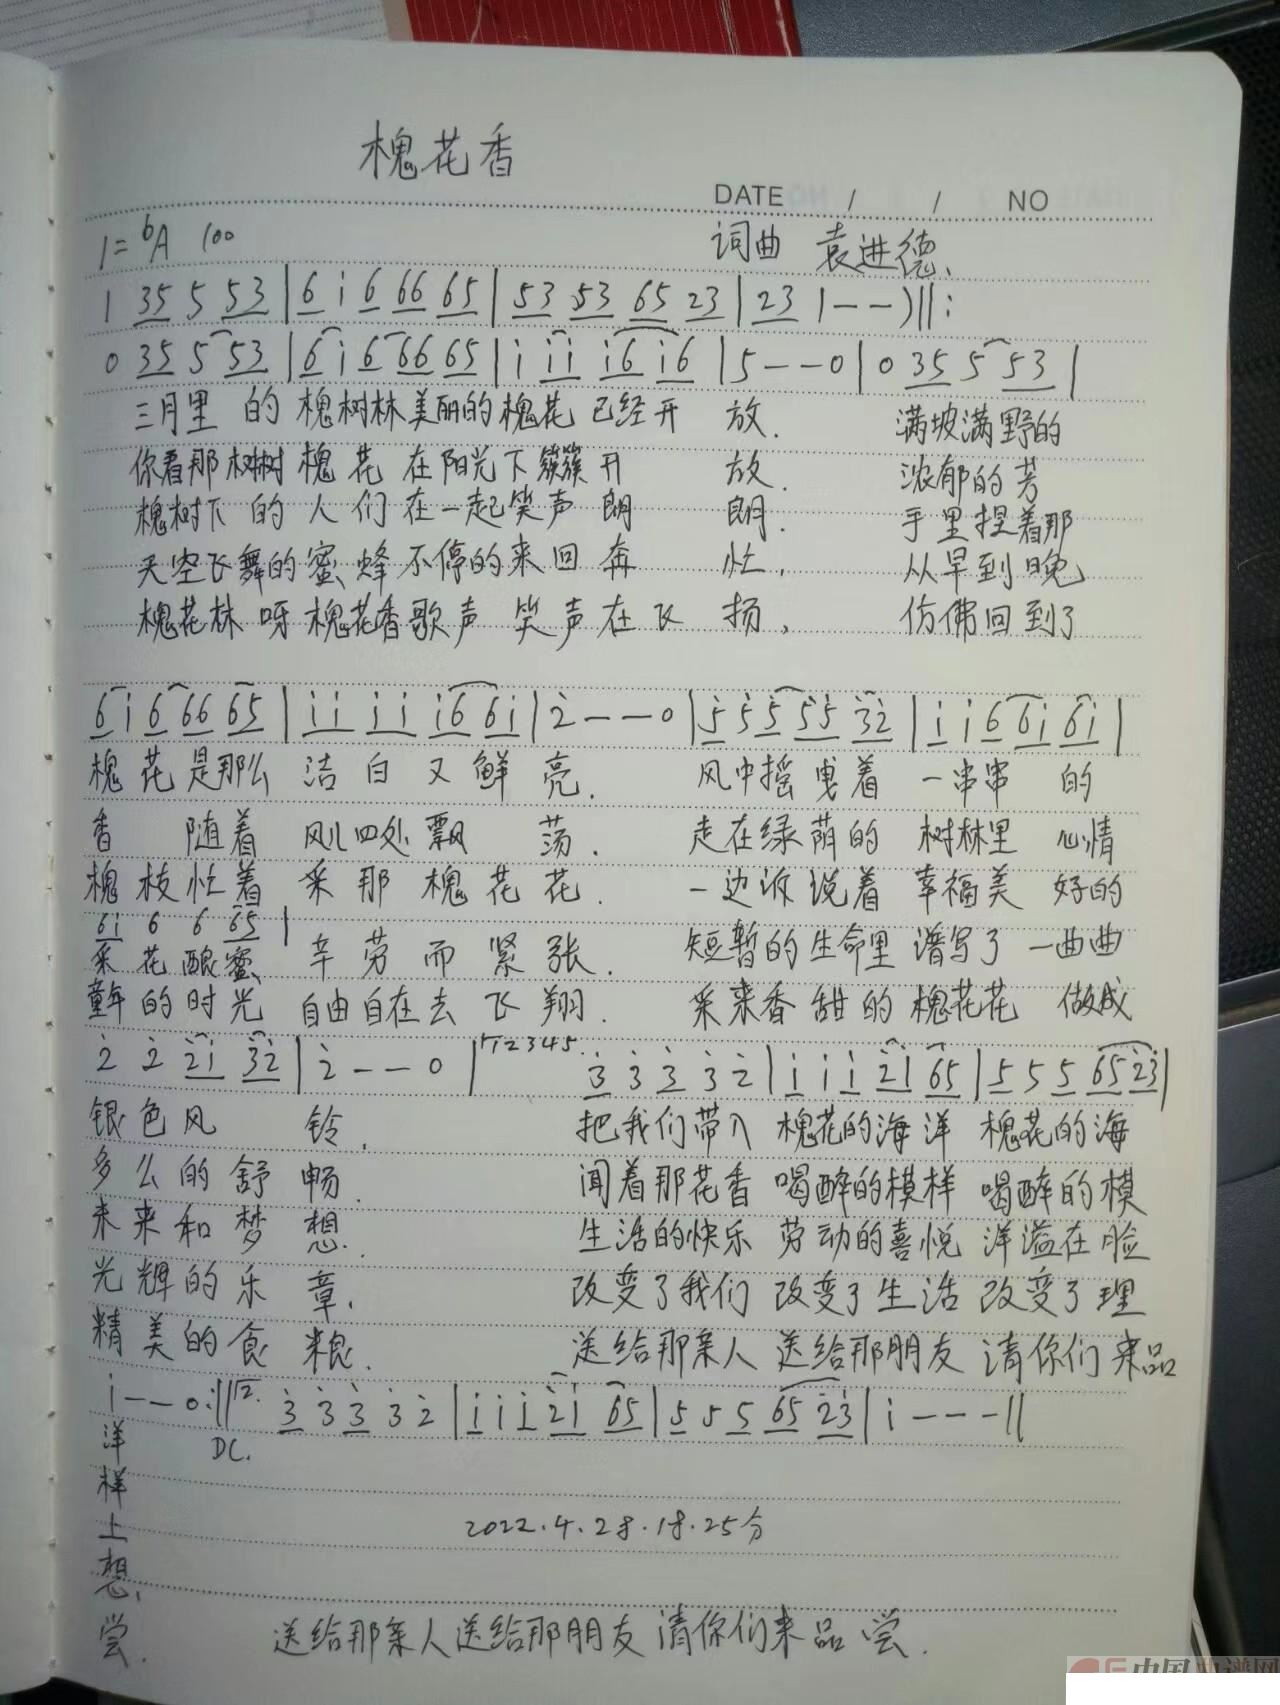 槐花香
DATE / / NO
1=♭A 100 词曲 袁进德、
1 35 5 53 | 6 i 6 66 65 | 53 53 65 23 | 23 1 - - ) ‖:
0 35 5 53 | 6 i 6 66 65 | i ii i6 i6 | 5 - - 0 | 0 35 5 53 |
三月里 的 槐树林美丽的槐花 已经开 放. 满坡满野的
你看那树树 槐 花 在阳光下簇簇开 放. 浓郁的芳
槐树下 的 人 们 在一起笑声 朗 朗. 手里捏着那
天空飞舞的蜜蜂 不停的来回 奔 忙, 从早到晚
槐花林 呀 槐花香歌声 笑声在飞 扬, 仿佛回到了
6 i 6 66 65 | i i i i i6 6i | 2 - - 0 | 5 5 5 55 32 | i i 6 6i 6i |
槐 花 是那么 洁 白 又 鲜 亮. 风中摇曳着 一串串 的
香 随着 风儿四处飘 荡. 走在绿荫的 树林里 心情
槐枝忙着 采 那 槐 花 花. 一边诉说着 幸福美 好的
6i 6 6 65 |
采花酿蜜 辛 劳 而 紧 张. 短暂的生命里 谱写了 一曲曲
童年的时光 自由自在去 飞 翔. 采来香甜的槐花花 做成
2 2 2i 32 | 2 - - 0 | 12345. 3 3 3 3 2 | i i i 2i 65 | 5 5 5 65 23 |
银色风 铃, 把我们带入 槐花的海洋 槐花的海
多么的舒 畅. 闻着那花香 喝醉的模样 喝醉的模
未来和梦 想. 生活的快乐 劳动的喜悦 洋溢在脸
光辉的乐 章, 改变了我们 改变了生活 改变了理
精美的食 粮. 送给那亲人 送给那朋友 请你们来品
i - - 0 :‖ 2. 3 3 3 3 2 | i i i 2i 65 | 5 5 5 65 23 | i - - - ‖
洋 DC.
样
上 2022.4.28.18.25分
想,
尝. 送给那亲人送给那朋友 请你们来品尝.
中国曲谱网